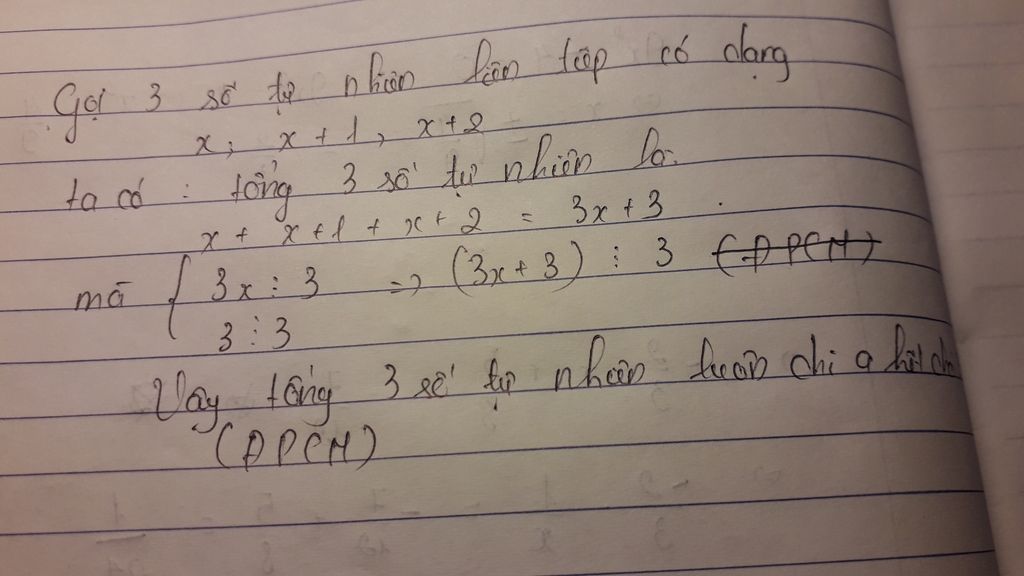 Gọi 3 số tự nhiên liên tiếp có dạng
x; x+1, x+2
ta có : tổng 3 số tự nhiên là:
x + x+1 + x+2 = 3x+3 .
mà { 3x ⋮ 3 => (3x+3) ⋮ 3 (ĐPCM)
3 ⋮ 3
Vậy tổng 3 số tự nhiên luôn chia hết
(ĐPCM)